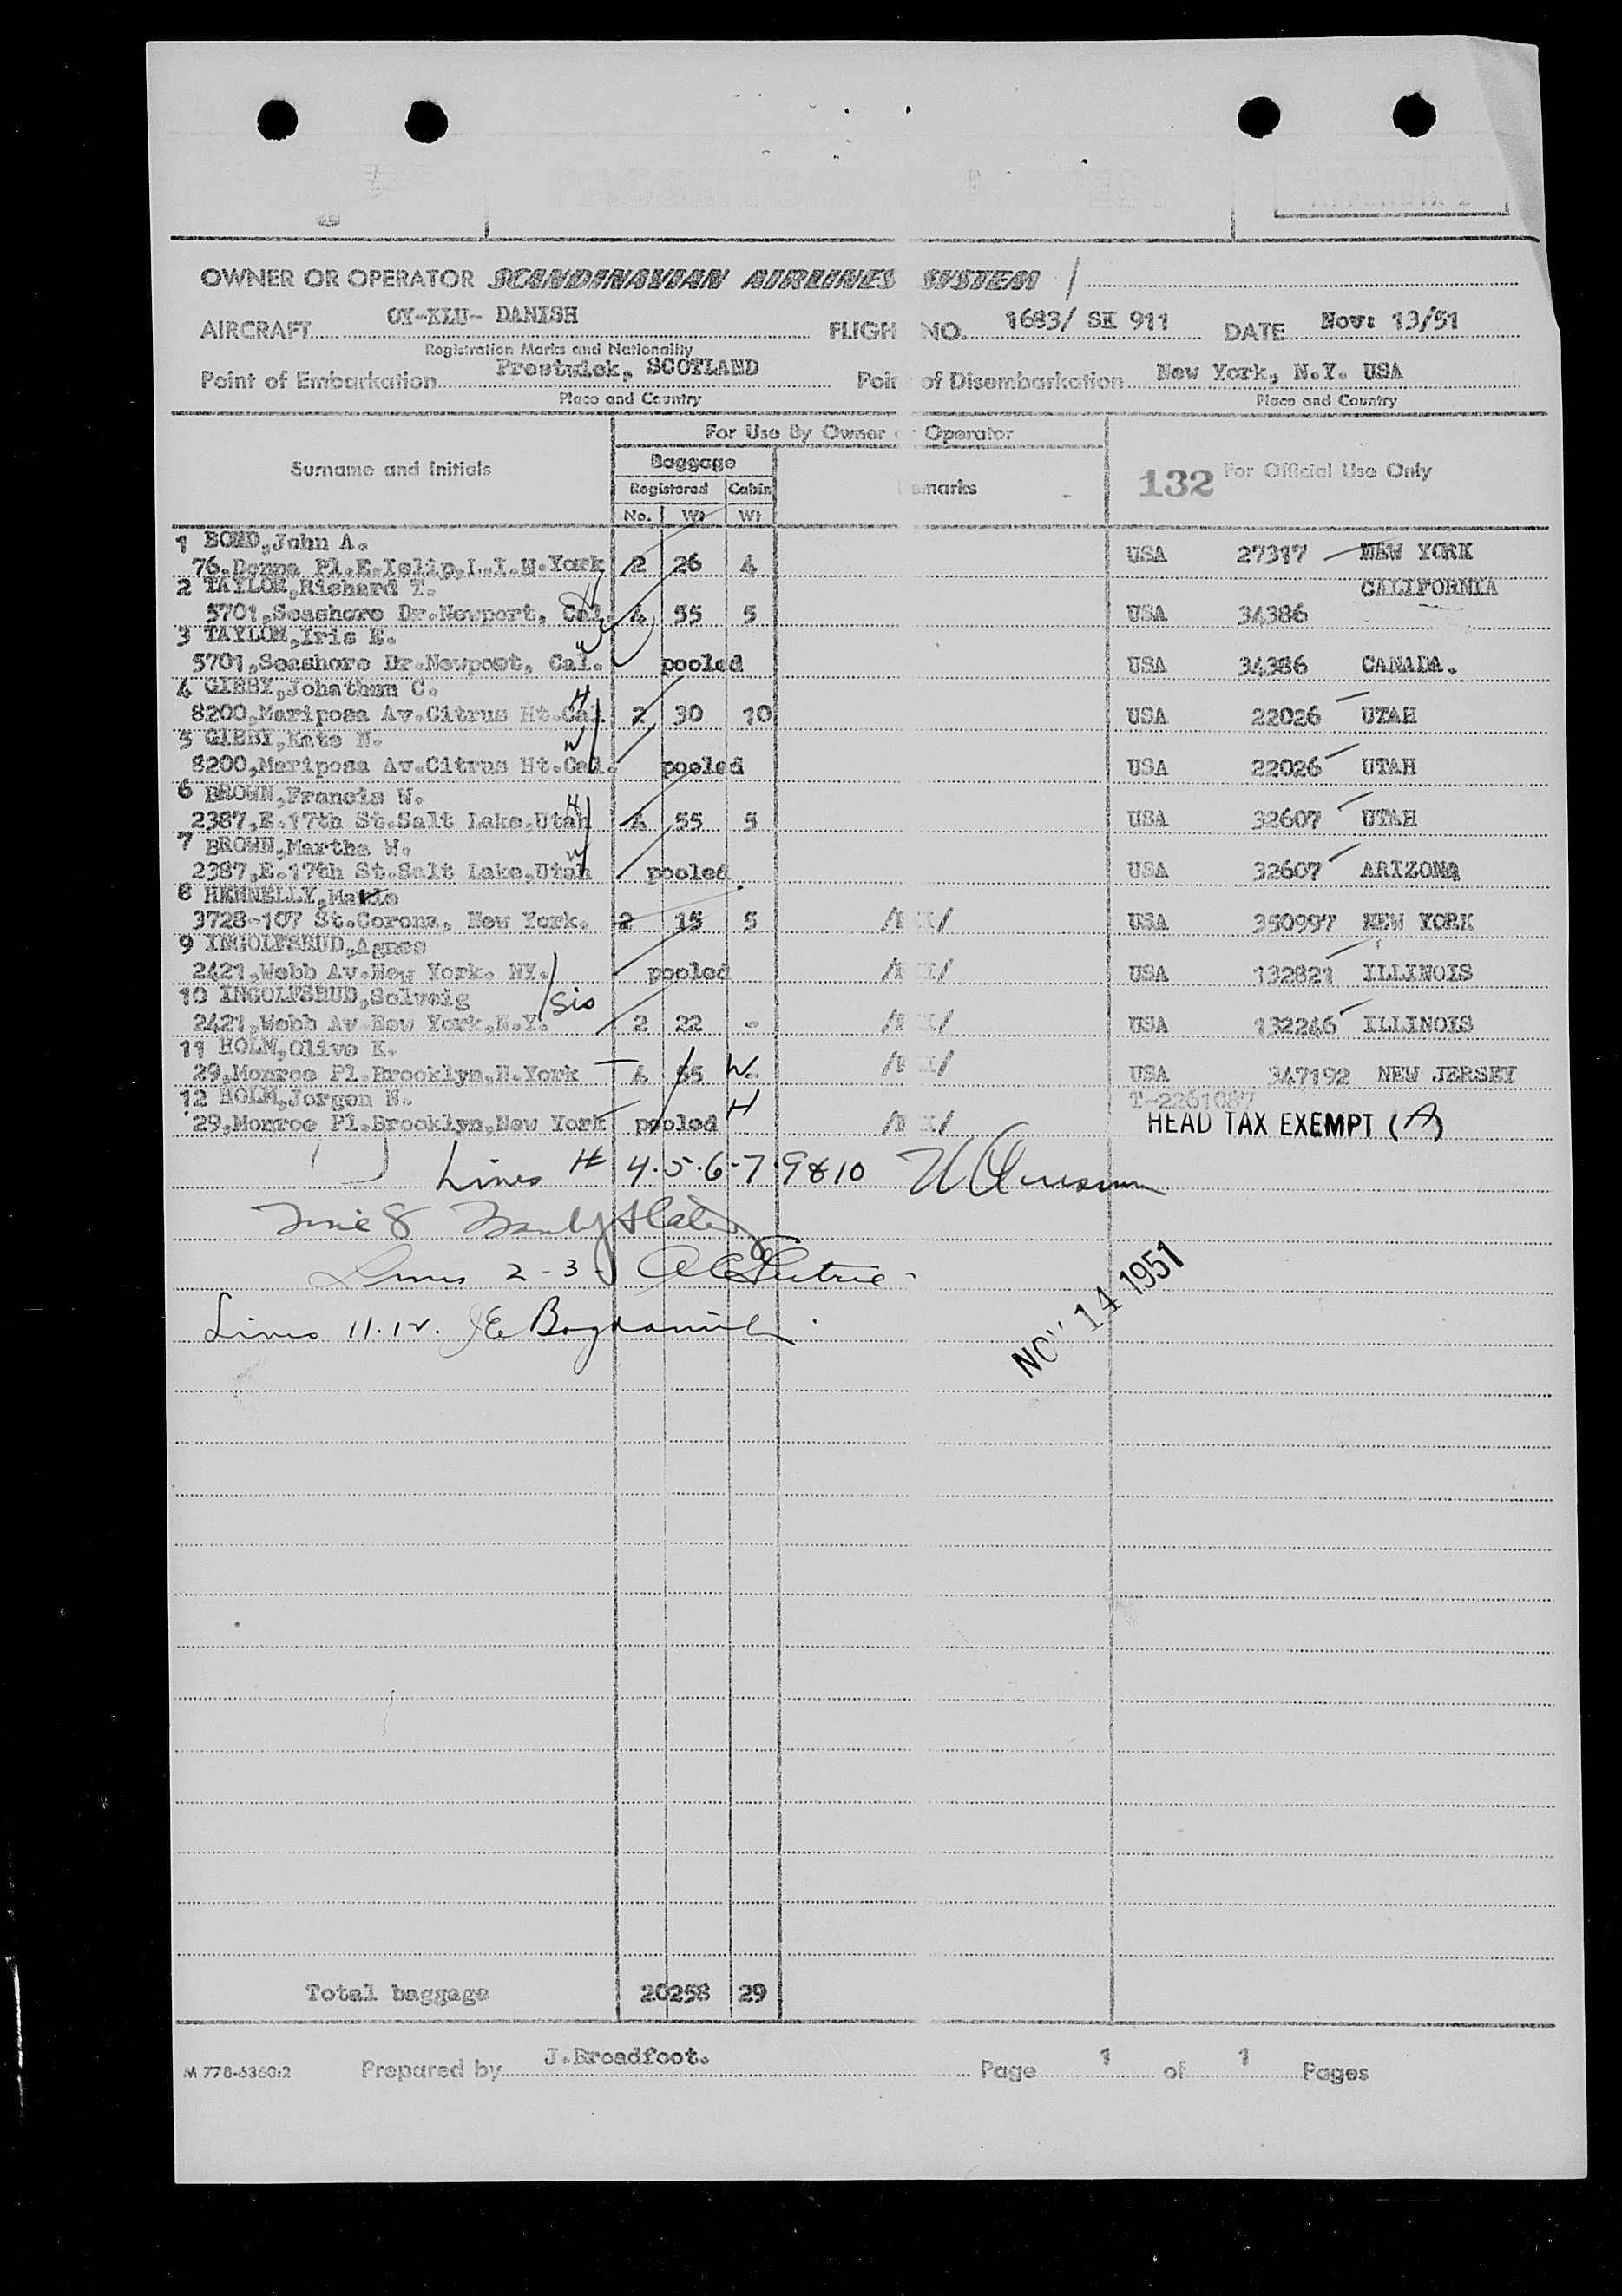 OWNER OR OPERATOR SCANDINAVIAN AIRLINES SYSTEM /
AIRCRAFT OY-KLU- DANISH FLIGH NO. 1683/ SK 911 DATE Nov: 13/51
Registration Marks and Nationality
Point of Embarkation Prestwick, SCOTLAND Poin of Disembarkation New York, N.Y. USA
Place and Country Place and Country
For Use By Owner or Operator
Surname and Initials Baggage marks 132 For Official Use Only
Registered Cabin
No. Wt Wt
1 BOND,John A.
76.Donna Pl.E.Islip.L.I.N.York 2 26 4 USA 27317 NEW YORK
2 TAYLOR,Richard T. CALIFORNIA
5701,Seashore Dr.Newport, Cal. 4 55 5 USA 34386
3 TAYLOR,Iris E.
5701,Seashore Dr.Newpost, Cal. pooled USA 34386 CANADA.
4 GIBBY,Johathun C. H
8200,Mariposa Av.Citrus Ht.Cal. 2 30 10 USA 22026 UTAH
5 GIBBY,Kate N. W
8200,Mariposa Av.Citrus Ht.Cal. pooled USA 22026 UTAH
6 BROWN,Francis W. H
2387,E.17th St.Salt Lake,Utah 4 55 5 USA 32607 UTAH
7 BROWN,Martha W. W
2387,E.17th St.Salt Lake,Utah pooled USA 32607 ARIZONA
8 HENNELLY,Marie
3728-107 St.Corona, New York. 2 15 5 USA 350997 NEW YORK
9 INGOLFSRUD,Agnes
2421,Webb Av.New York. NY. pooled USA 132821 ILLINOIS
10 INGOLFSRUD,Solveig Sis
2421,Webb Av.New York,N.Y. 2 22 - USA 132246 ILLINOIS
11 HOLM,Olive K.
29,Monroe Pl.Brooklyn.N.York 4 55 W USA 347192 NEW JERSEY
12 HOLM,Jorgen N. H T-2261087
29,Monroe Pl.Brooklyn,New York pooled HEAD TAX EXEMPT (A)
Lines # 4.5.6-7.9&10
Line 8
Lines 2-3
Lines 11.12.
NOV 14 1951
Total baggage 20 258 29
M 778-6360:2 Prepared by J.Broadfoot. Page 1 of 1 Pages